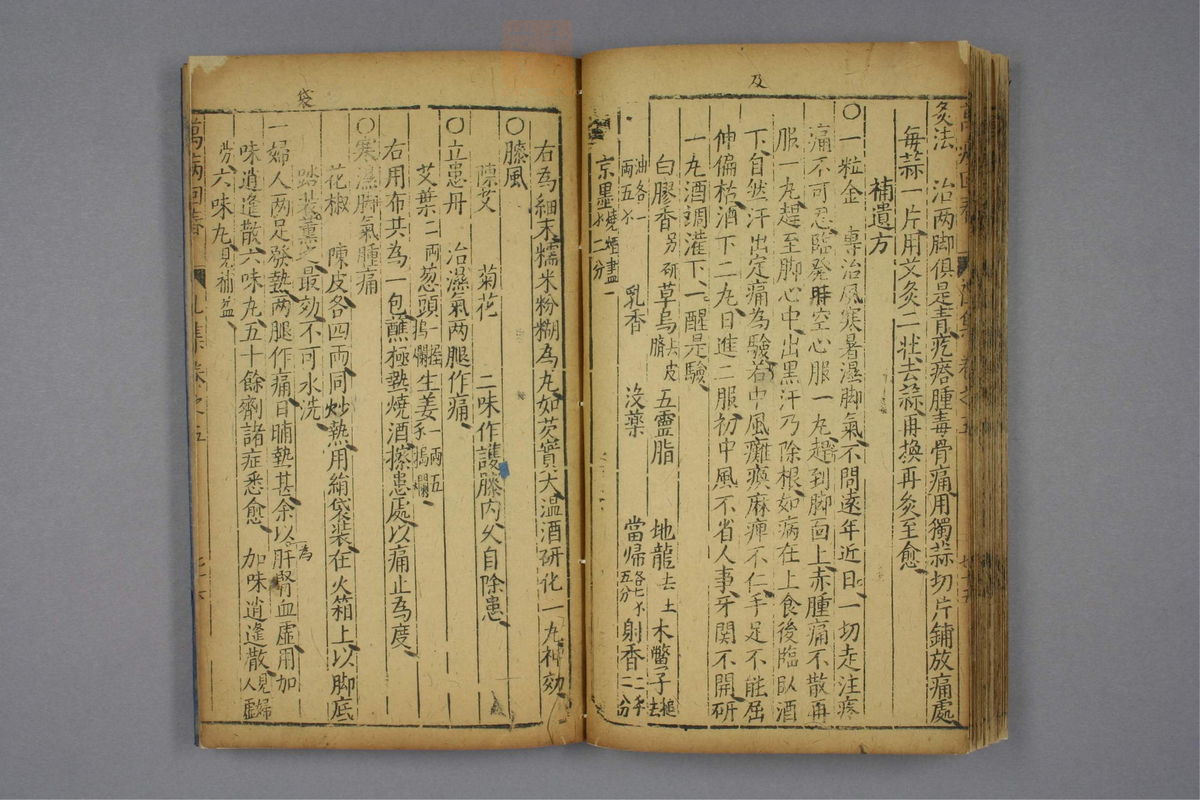 及
灸法 治两脚俱是青疙瘩腫毒骨痛用獨蒜切片鋪放痛處
每蒜一片用艾灸二壮去蒜再換再灸至愈
補遺方
〇一粒金 專治風寒暑濕脚氣不問遠年近日一切走注疼
痛不可忍臨發時空心服一九趕到脚面上赤腫痛不散再
服一九趕至脚心中出黑汗乃除根如病在上食後臨臥酒
下自然汗出定痛為驗若中風癱瘓麻痺不仁手足不能屈
伸偏枯酒下二九日進二服初中風不省人事牙関不開研
一九酒調灌下一醒是驗
白膠香另研 草烏去皮臍 五靈脂 地龍去土 木鱉子搥去
油各一两五 乳香 没藥 當帰各七五分 射香二二分
京墨燒烟盡二分
袋
右為細末糯米粉糊為九如芡實大温酒研化一九神効
〇膝風
陳艾 菊花 二味作護膝内乆自除患
〇立患丹 治濕氣两腿作痛
艾葉二两 葱頭一握搗爛 生姜一两五搗爛
右用布共為一包蘸極熱燒酒擦患處以痛止為度
〇寒濕脚氣腫痛
花椒 陳皮各四两同炒熱用絹袋装在火箱上以脚底
踏袋薰之最効不可水洗
一婦人两足發熱两腿作痛日晡熱甚余以為肝腎血虛用加
味逍遙散六味九五十餘劑諸症悉愈 加味逍遙散見婦人虛
勞 六味九見補益
萬病回春 卷之五